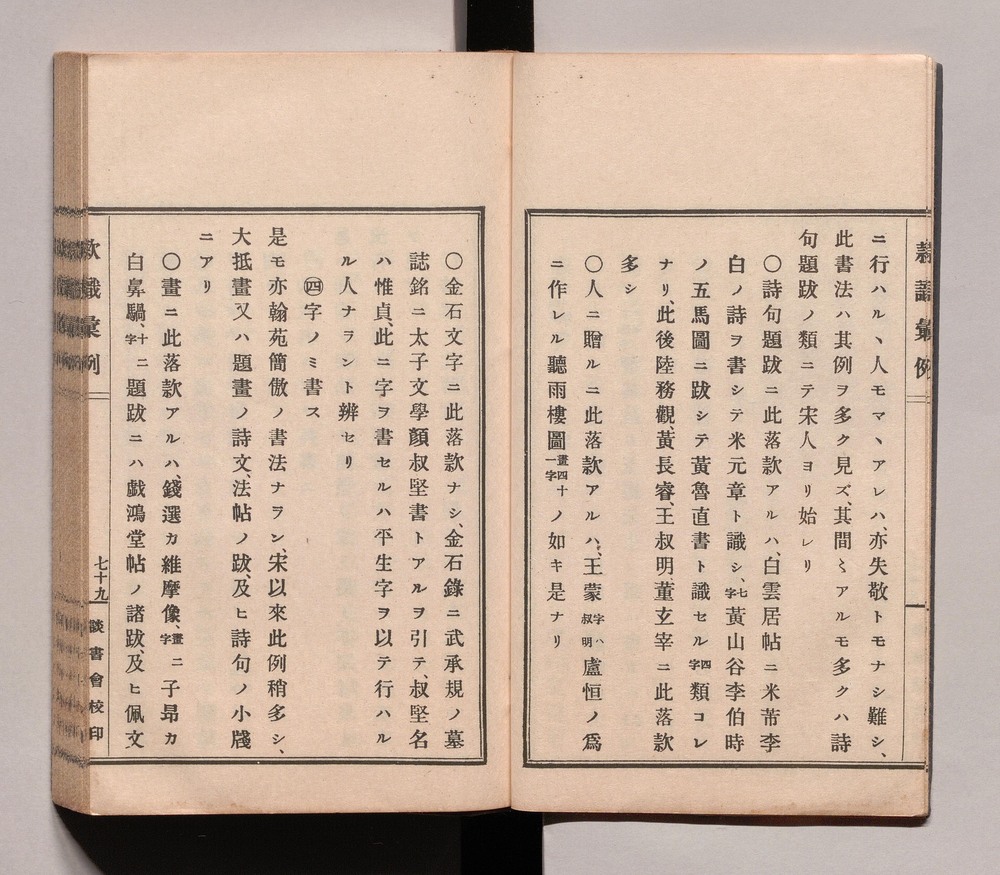 ニ行ハルヽ人モマヽアレハ、亦失敬トモナシ難シ、
此書法ハ其例ヲ多ク見ズ、其間〻アルモ多クハ詩
句題跋ノ類ニテ宋人ヨリ始レリ
〇詩句題跋ニ此落款アルハ、白雲居帖ニ米芾李
白ノ詩ヲ書シテ米元章ト識シ、七字黃山谷李伯時
ノ五馬圖ニ跋シテ黃魯直書ト識セル四字類コレ
ナリ、此後陸務觀、黃長睿、王叔明董玄宰ニ此落款
多シ
〇人ニ贈ルニ此落款アルハ、王蒙字ハ叔明盧恒ノ爲
ニ作レル聽雨樓圖畫四十一字ノ如キ是ナリ
〇金石文字ニ此落款ナシ、金石錄ニ武承規ノ墓
誌銘ニ太子文學顏叔堅書トアルヲ引テ、叔堅名
ハ惟貞、此ニ字ヲ書セルハ平生字ヲ以テ行ハル
ル人ナラント辨セリ
㊃字ノミ書ス
是モ亦翰苑簡傲ノ書法ナラン、宋以來此例稍多シ、
大抵畫又ハ題畫ノ詩文、法帖ノ跋、及ヒ詩句ノ小牋
ニアリ
〇畫ニ此落款アルハ錢選カ維摩像、畫字ニ子昻カ
白鼻騧、十字ニ題跋ニハ戲鴻堂帖ノ諸跋、及ヒ佩文
款識彙例
七十九
談書會校印